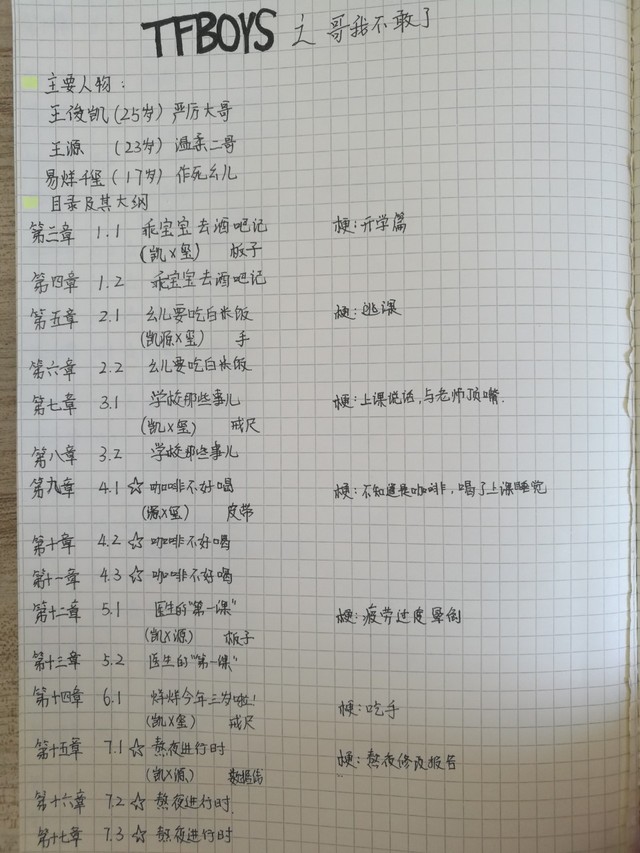 TFBOYS 之 哥我不敢了
主要人物:
王俊凯(25岁) 严厉大哥
王源 (23岁) 温柔二哥
易烊千玺(17岁) 作死幺儿
目录及其大纲
第二章 1.1 乖宝宝去酒吧记 梗:开学篇
(凯×玺) 板子
第四章 1.2 乖宝宝去酒吧记
第五章 2.1 幺儿要吃白米饭 梗:逃课
(凯源×玺) 手
第六章 2.2 幺儿要吃白米饭
第七章 3.1 学校那些事儿 梗:上课说话,与老师顶嘴.
(凯×玺) 戒尺
第八章 3.2 学校那些事儿
第九章 4.1 ☆ 咖啡不好喝 梗:不知道是咖啡,喝了上课睡觉
(源×玺) 皮带
第十章 4.2 ☆ 咖啡不好喝
第十一章 4.3 ☆ 咖啡不好喝
第十二章 5.1 医生的"第一课" 梗:疲劳过度晕倒
(凯×源) 板子
第十三章 5.2 医生的"第一课"
第十四章 6.1 烊烊今年三岁啦! 梗:吃手
(凯×玺) 戒尺
第十五章 7.1 ☆ 熬夜进行时 梗:熬夜修改报告
(凯×源) 数据线
第十六章 7.2 ☆ 熬夜进行时.
第十七章 7.3 ☆ 熬夜进行时